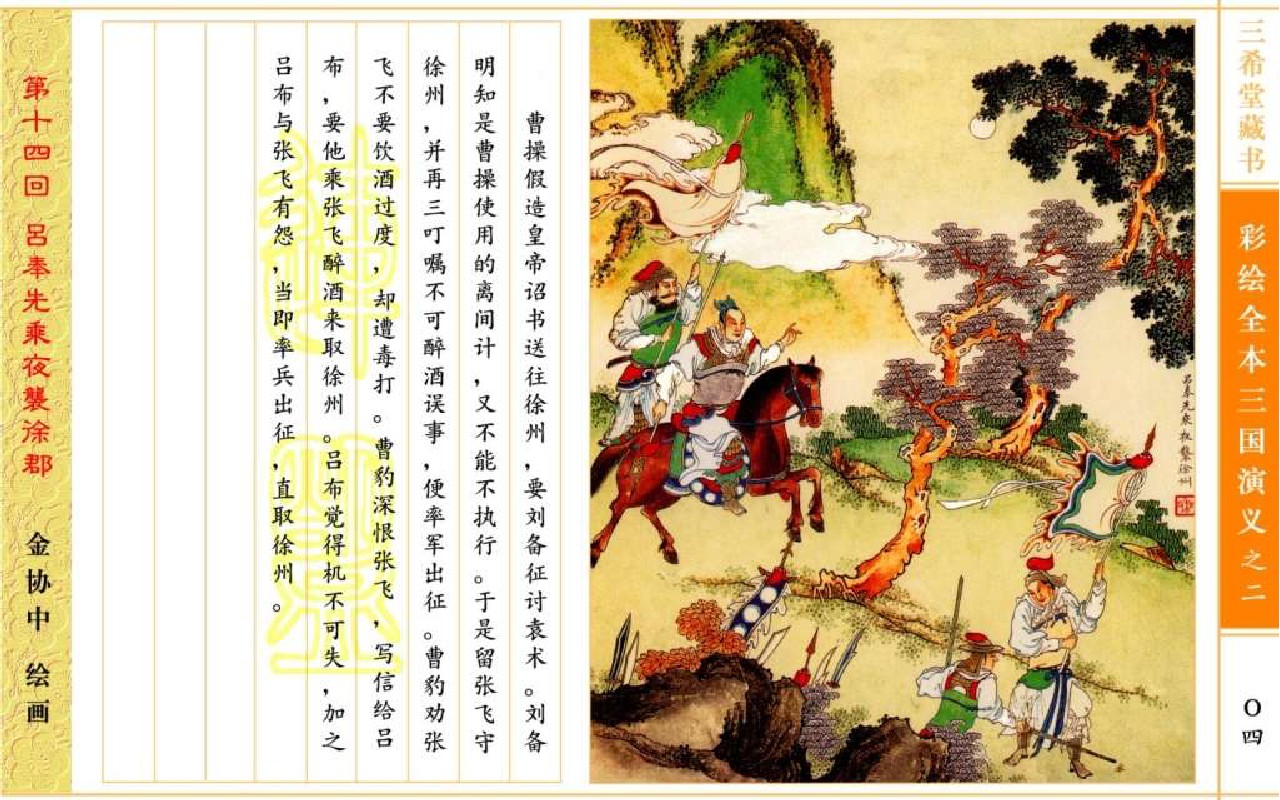 三希堂藏书
彩绘全本三国演义之二
〇四
吕奉先乘夜袭徐州
曹操假造皇帝诏书送往徐州，要刘备征讨袁术。刘备
明知是曹操使用的离间计，又不能不执行。于是留张飞守
徐州，并再三叮嘱不可醉酒误事，便率军出征。曹豹劝张
飞不要饮酒过度，却遭毒打。曹豹深恨张飞，写信给吕
布，要他乘张飞醉酒来取徐州。吕布觉得机不可失，加之
吕布与张飞有怨，当即率兵出征，直取徐州。
第十四回 吕奉先乘夜袭徐郡
金协中 绘画